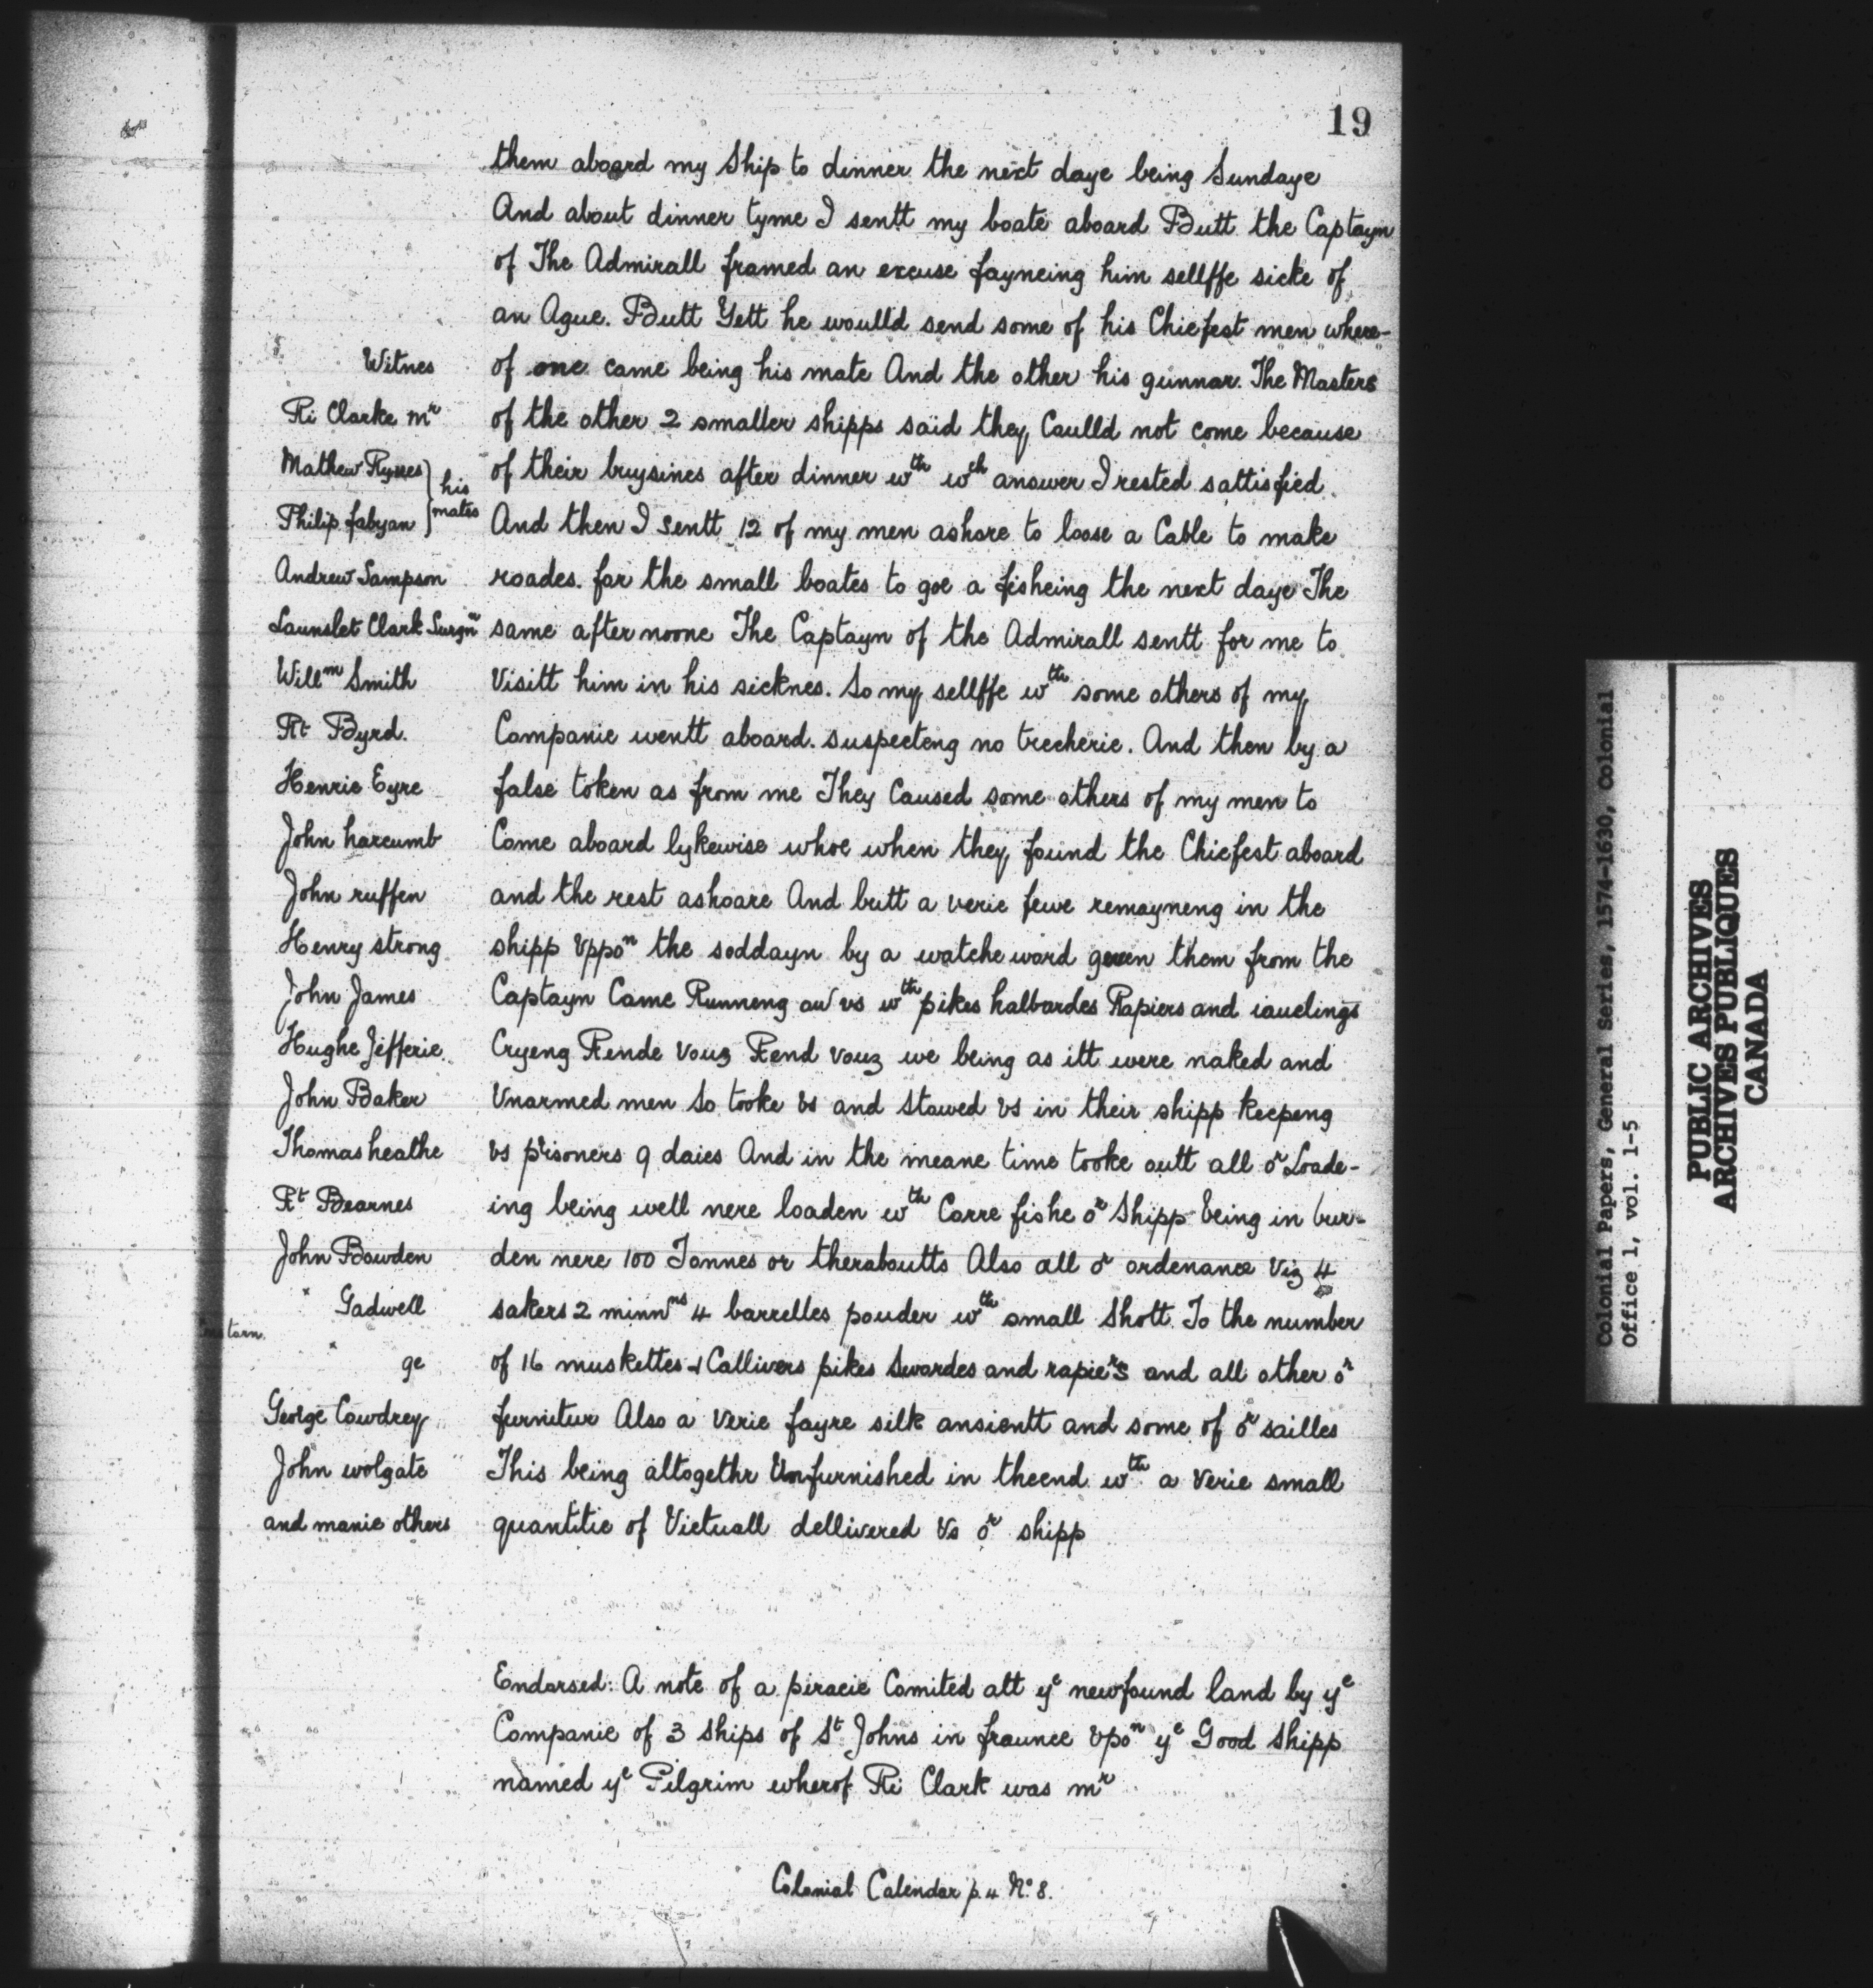 19
them aboard my Ship to dinner the next daye being Sundaye
And about dinner tyme I sentt my boate aboard Butt the Captayn
of The Admirall framed an excuse fayneing him sellffe sicke of
an Ague. Butt Yett he woulld send some of his Chiefest men where-
of one came being his mate And the other his gunnar. The Masters
of the other 2 smaller shipps said they Coulld not come because
of their buysines after dinner wth wch answer I rested sattisfied.
And then I sentt 12 of my men ashore to loose a Cable to make
roades for the small boates to goe a fisheing the next daye The
same after noone The Captayn of the Admirall sentt for me to
Visitt him in his sicknes. So my sellffe wth some others of my
Companie wentt aboard. suspecteng no trecherie. And then by a
false token as from me They Caused some others of my men to
Come aboard lykewise whoe when they found the Chiefest aboard
and the rest ashoare And butt a verie fewe remayneng in the
shipp Vppon the soddayn by a watche word geven them from the
Captayn Came Runneng on vs wth pikes halbardes Rapiers and iavelings
Cryeng Rende Vouz Rend vouz we being as itt were naked and
Vnarmed men So tooke Vs and stowed vs in their shipp keepeng
Vs prisoners 9 daies And in the meane time tooke outt all or Loade-
ing being well nere loaden wth Corre fishe or Shipp being in bur-
den nere 100 Tonnes or theraboutts Also all or ordenance Viz 4
sakers 2 minnns 4 barrelles pouder wth small Shott To the number
of 16 muskettes & Callivers pikes Swordes and rapiers and all other or
furnitur Also a Verie fayre silk ansientt and some of or sailles
This being altogethr Unfurnished in theend wth a Verie small
quantitie of Victuall dellivered Vs or shipp
Witnes
Ri Clarke mr
Mathew
Philip fabyan
his
mates
Andrew Sampson
Launslet Clark Surgn
Willm Smith
Rt Byrd.
Henrie Eyre
John harcumb
John ruffen
Henry strong
John James
Hughe Jefferie
John Baker
Thomas heathe
Rt Bearnes
John Bowden
Gadwell
torn.
ge
George Cowdrey
John wolgate
and manie others
Endorsed: A note of a piracie Comited att ye newfound land by ye
Companie of 3 Ships of St Johns in fraunce Vpon ye Good Shipp
named ye Pilgrim wherof Ri Clark was mr
Colonial Calendar p. 4 No. 8.
Colonial Papers, General Series, 1574-1630, Colonial
Office 1, vol. 1-5
PUBLIC ARCHIVES
ARCHIVES PUBLIQUES
CANADA